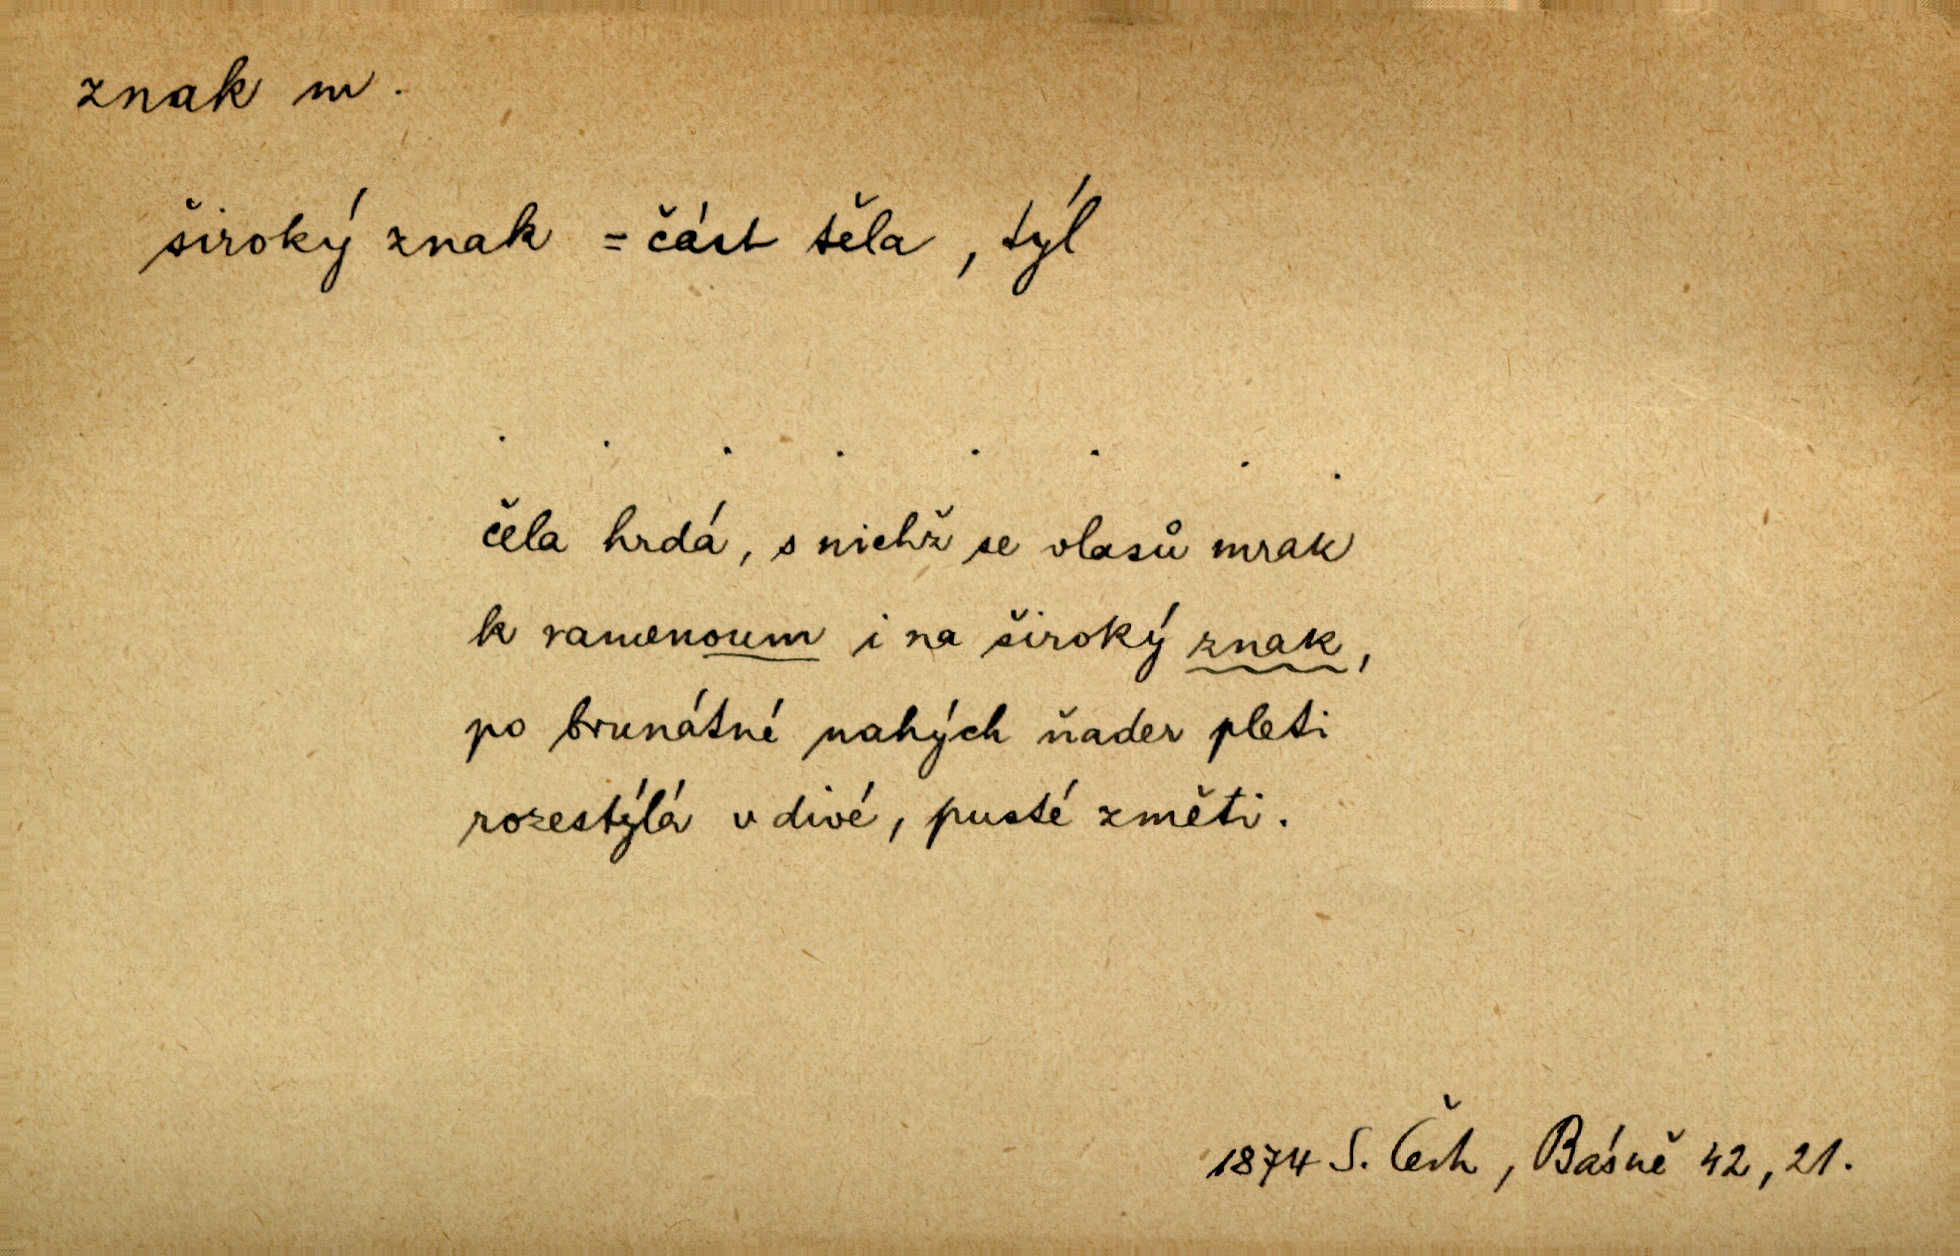 znak m.
široký znak = část těla, týl
. . . . . . . .
čela hrdá, s nichž se vlasů mrak
k ramenoum i na široký znak,
po brunátné nahých ňader pleti
rozestýlá v divé, pusté změti.
1874 S. Čech, Básně 42, 21.